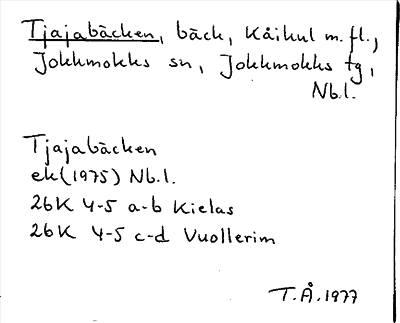 Tjajabäcken, bäck, Kåikul m.fl.,
Jokkmokks sn, Jokkmokks tg,
Nb.l.
Tjajabäcken
ek(1975) Nb.l.
26K 4-5 a-b Kielas
26K 4-5 c-d Vuollerim
T.Å.1977